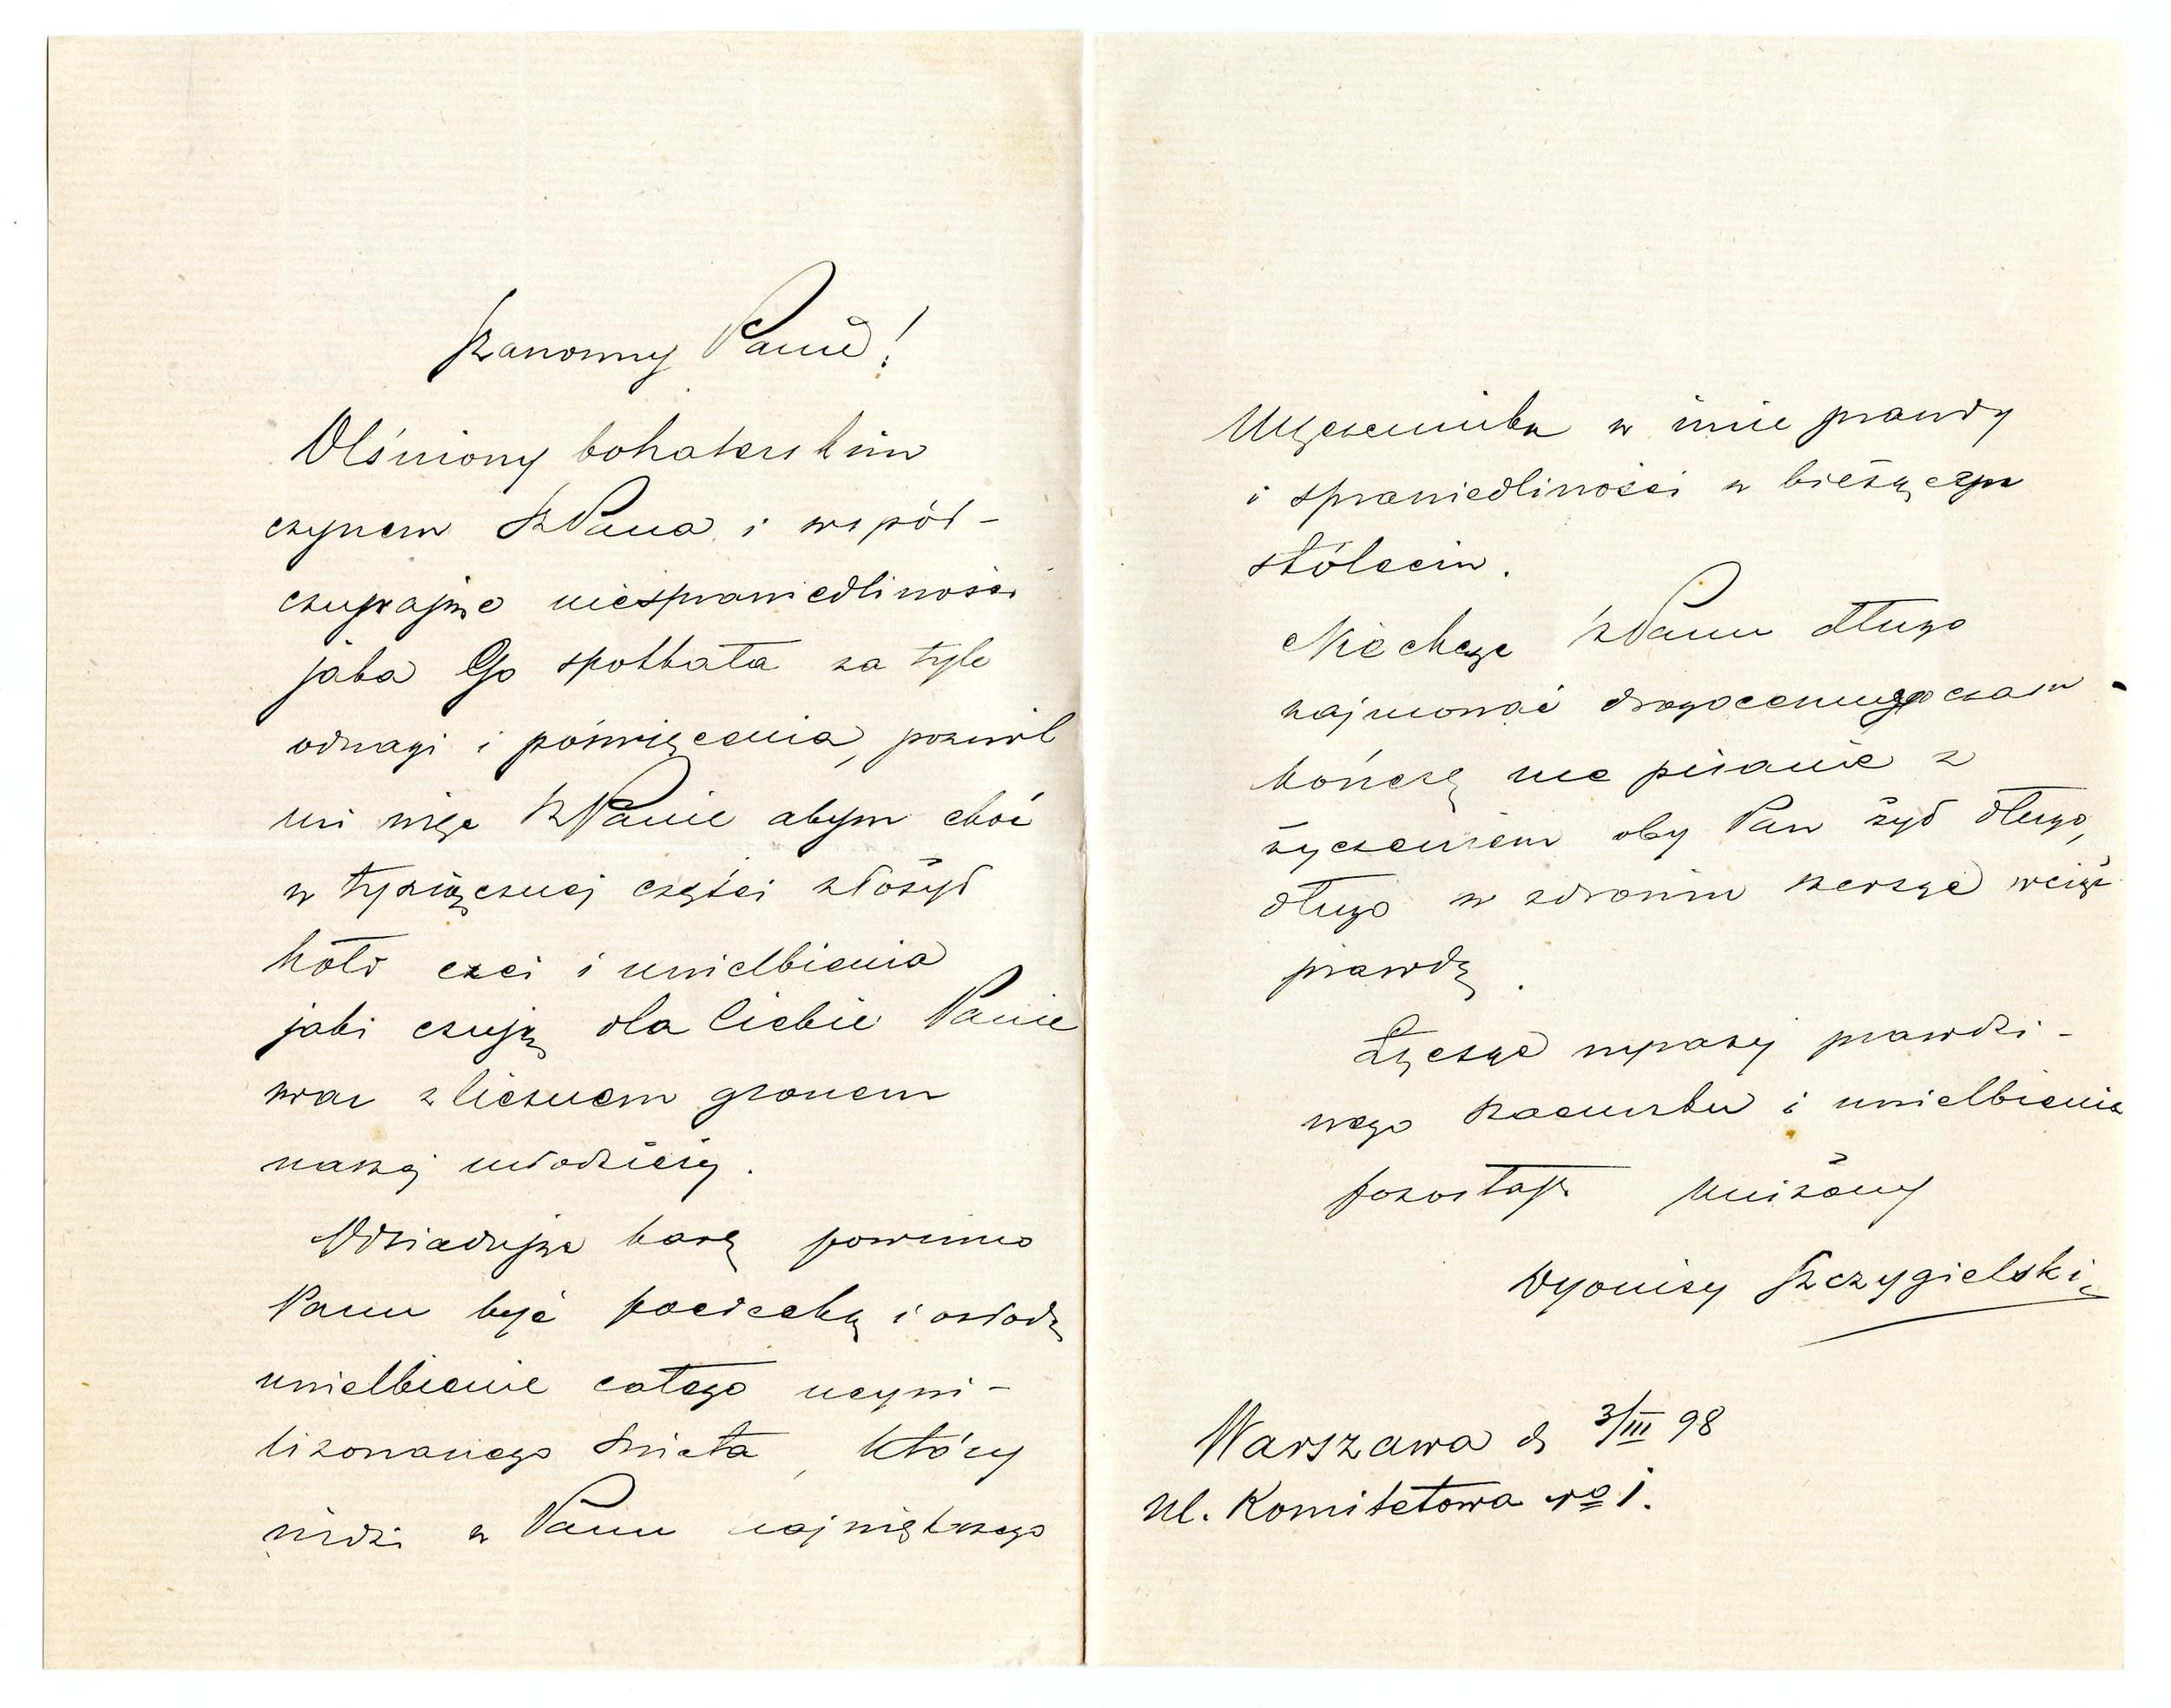 Szanowny Panie!
Olśniony bohaterskim
czynem SzPana i współ-
czując niesprawiedliwości
jaka Go spotkała za tyle
odwagi i poświęcenia, pozwól
mi więc SzPanie abym choć
w tysiącznej części złożył
hołd czci i uwielbienia
jaki czuję dla Ciebie Panie
wraz z licznem gronem
naszej młodzieży.
Odsiadując kazę powinno
Panu być pociechą i osłodą
uwielbienie całego ucywi-
lizowanego świata, który
widzi w Panu największego
Męczennika w imie prawdy
i sprawiedliwości w bieżączym
stóleciu.
Nie chcąc SzPanu długo
zajmować drogocennego czasu
kończę me pisanie z
życzeniem oby Pan żył długo,
długo w zdrowiu szerząc wciąż
prawdę.
Łącząc wyrazy prawdzi-
wego szacunku i uwielbienia
pozostaję uniżony
Dyonizy Szczygielski
Warszawa d. 3/III 98
Ul. Komitetowa No 1.